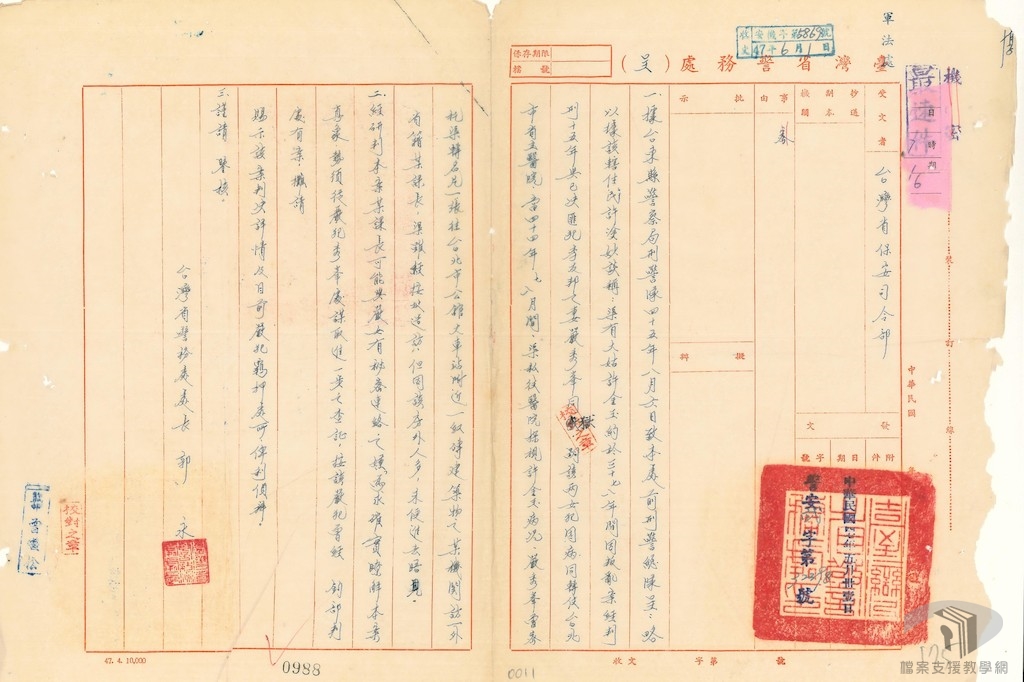 軍法處
機密
收文 安徽 字第5869號
47年6月1日
保存期限
檔號
臺灣省警務處（呈）
最速件
受文者
台灣省保安司令部
抄送副本機關
事由
批示
擬辦
發文
附件
日期
字號
中華民國
中華民國47年五月卅壹日
警安 字第 號
一、據台東縣警察局刑警隊四十五年八月六日致本處前刑警總隊呈：略
以據該轄住民許 談稱：渠有大姑許金玉約於三十七八年間因叛亂案經判
刑十五年與已決匪犯李友邦之妻嚴秀峯同獄 該兩女犯因病同轉使台北
市省立醫院 四十四年七八月間、渠赴後醫院探視許金玉病況、嚴秀峯曾晨
託渠轉名片一張往台北市公館大車站附近一紅磚建築物之某機關訪一外
省籍某課長、渠雖經按址造訪、但因該房外人多、未便進去晤見．
二、經研判本案某課長可能與嚴女有秘密連絡之嫌為求確實瞭解本案
真象勢須從嚴犯秀峯處謀取進一步之查證，按該嚴犯曾經 鈞部判
處有案，懇請
賜示該案判決詳情及目前嚴犯羈押處所俾利偵辦
三、謹請 察核．
台灣省警務處處長 郭 永
校對之章
裝
訂
線
收文 字第 號
47. 4. 10,000
0988
0011
128
檔案支援教學網